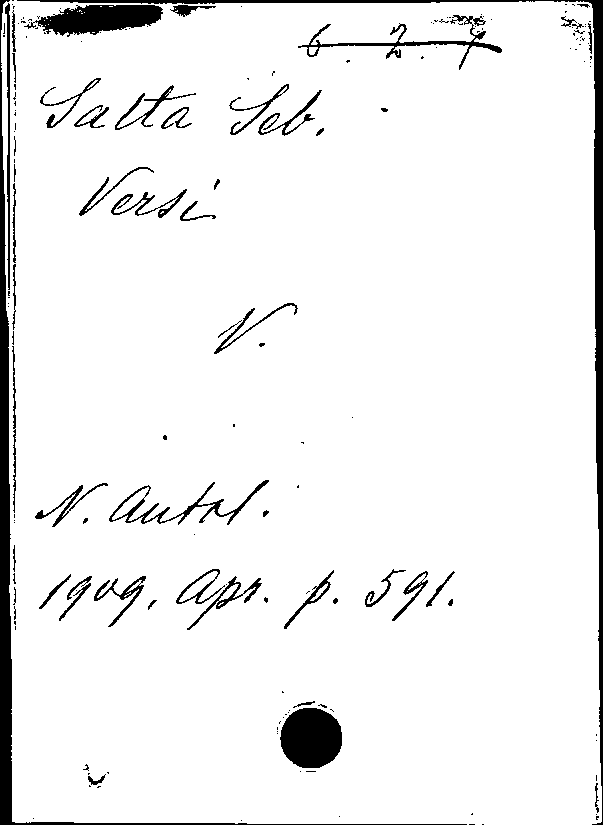 6. 2. 9
Satta Seb.
Versi
V.
N. Antol.
1909, Apr. p. 591.